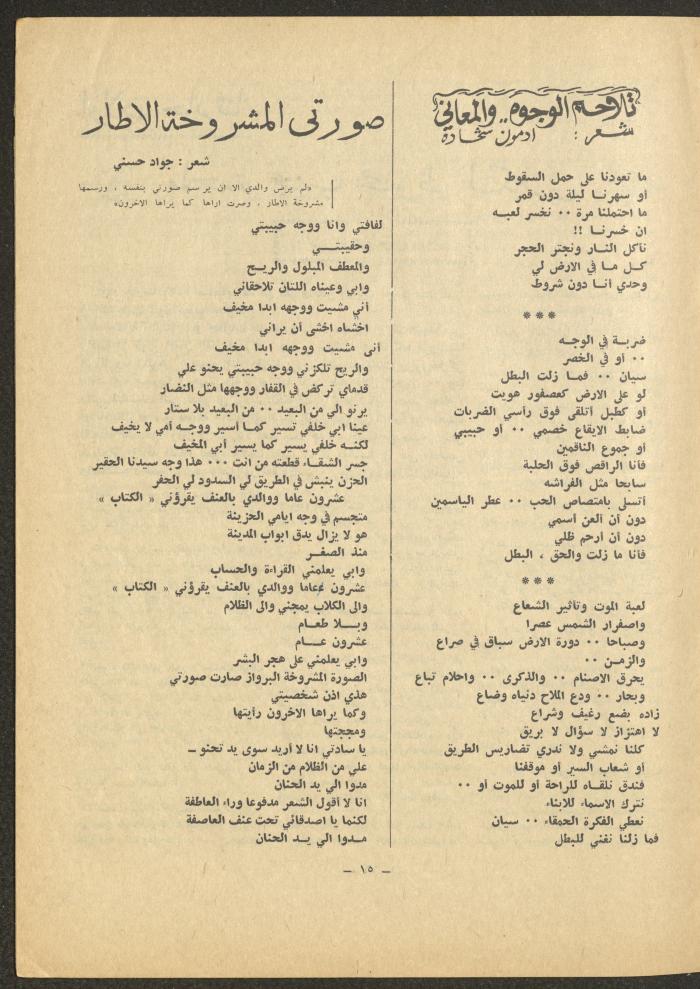 تلاوحم الوجوه .. والمعاني
شعر : ادمون شحاده
ما تعودنا على حمل السقوط
أو سهرنا ليلة دون قمر
ما احتملنا مرة ٠٠ نخسر لعبه
ان خسرنا !!
نأكل النار ونجتر الحجر
كل ما في الارض لي
وحدي أنا دون شروط
***
ضربة في الوجه
٠٠ أو في الخصر
سيان ٠٠ فما زلت البطل
لو على الارض كعصفور هويت
أو كطبل أتلقى فوق رأسي الضربات
ضابط الايقاع خصمي ٠٠ أو حبيبي
أو جموع الناقمين
فأنا الراقص فوق الحلبة
سابحا مثل الفراشه
أتسلى بامتصاص الحب ٠٠ عطر الياسمين
دون أن ألعن أسمي
دون أن ارحم ظلي
فأنا ما زلت والحق ، البطل
***
لعبة الموت وتأثير الشعاع
واصفرار الشمس عصرا
وصباحا ٠٠ دورة الارض سباق في صراع
والزمن ٠٠
يحرق الاصنام ٠٠ والذكرى ٠٠ واحلام تباع
وبحار ٠٠ ودع الملاح دنياه وضاع
زاده بضع رغيف وشراع
لا اهتزاز لا سؤال لا بريق
كلنا نمشي ولا ندري تضاريس الطريق
أو شعاب السير أو موقفنا
فندق نلقاه للراحة أو للموت أو ٠٠
نترك الاسماء للابناء
نعطي الفكرة الحمقاء ٠٠ سيان
فما زلنا نغني للبطل
صورتي المشروخة الاطار
شعر : جواد حسني
«لم يرض والدي الا ان يرسم صورتي بنفسه ، ورسمها
مشروخة الاطار ، وصرت اراها كما يراها الاخرون»
لفافتي وانا ووجه حبيبتي
وحقيبتي
والمعطف المبلول والريح
وابي وعيناه اللتان تلاحقاني
أني مشيت ووجهه ابدا مخيف
اخشاه اخشى أن يراني
أنى مشيت ووجهه ابدا مخيف
والريح تلكزني ووجه حبيبتي يحنو علي
قدماي تركض في القفار ووجهها مثل النضار
يرنو الي من البعيد ٠٠ من البعيد بلا ستار
عينا ابي خلفي تسير كما أسير ووجه أمي لا يخيف
لكنه خلفي يسير كما يسير أبي المخيف
جسر الشقاء قطعته من انت ٠٠٠ هذا وجه سيدنا الحقير
الحزن ينبش في الطريق لي السدود لي الحفر
عشرون عاما ووالدي بالعنف يقرؤني « الكتاب »
متجسم في وجه ايامي الحزينة
هو لا يزال يدق ابواب المدينة
منذ الصغر
وابي يعلمني القراءة والحساب
عشرون عاما ووالدي بالعنف يقرؤني « الكتاب »
والى الكلاب يمجني والى الظلام
وبلا طعام
عشرون عام
وابي يعلمني على هجر البشر
الصورة المشروخة البرواز صارت صورتي
هذي اذن شخصيتي
وكما يراها الاخرون رأيتها
ومججتها
يا سادتي انا لا أريد سوى يد تحنو –
علي من الظلام من الزمان
مدوا الي يد الحنان
انا لا أقول الشعر مدفوعا وراء العاطفة
لكنما يا اصدقائي تحت عنف العاصفة
مدوا الي يد الحنان
– ١٥ –